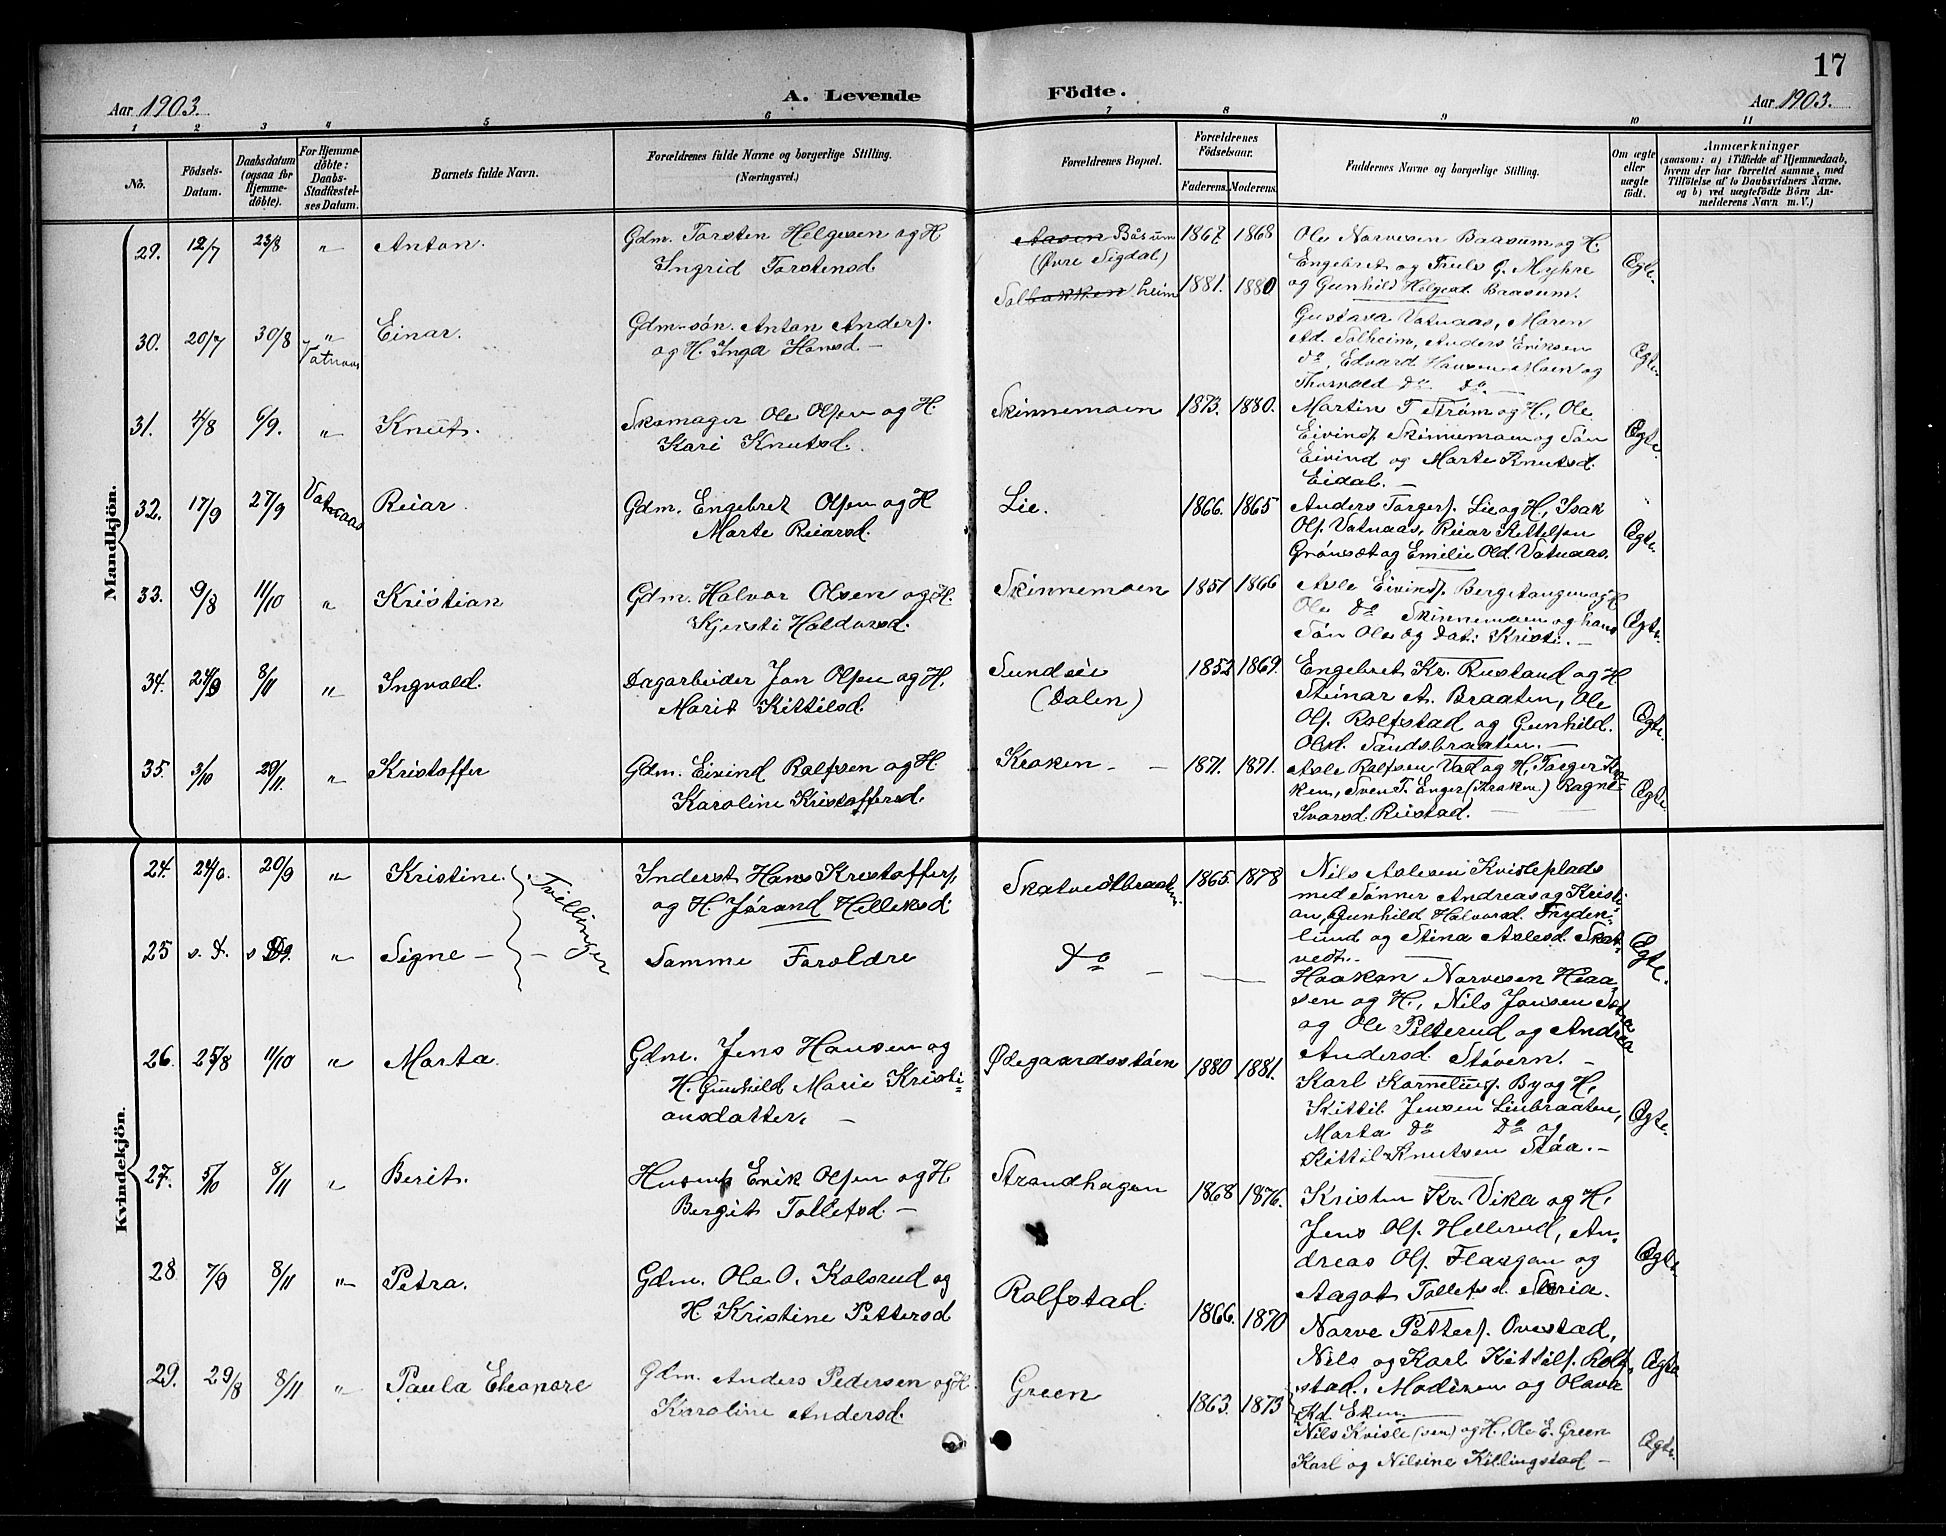 17
Aar 1903.
A. Levende
Födte.
Aar 1903.
1 2 3 4 5 6 7 8 9 10 11
No.
Födsels-Datum.
Daabsdatum (ogsaa for Hjemme-döbte).
For Hjemme-döbte: Daabs-Stadfæstel-ses Datum.
Barnets fulde Navn.
Forældrenes fulde Navne og borgerlige Stilling.
(Næringsvei.)
Forældrenes Bopæl.
Forældrenes Födselsaar.
Faderens. Moderens.
Faddernes Navne og borgerlige Stilling.
Om ægte eller uægte födt.
Anmærkninger
(saasom: a) i Tilfælde af Hjemmedaab,
hvem der har forrettet samme, med
Tilföielse af to Daabsvidners Navne.
og b) ved uægtefödte Börn An-
melderens Navn m. V.)
Mandkjön.
29. 12/7 23/8 " Anton. Gdm. Torsten Helgesen og H
Ingrid Torstensd.
Aasen Båsum
(Øvre Sigdal)
1867 1868
Ole Narvesen Baasum og H.
Engebret og Truls G. Myhre
og Gunhild Helgesd. Baasum.
Ægte.
30. 20/7 30/8 "
Vatnaas
Einar. Gdm-søn. Anton Anders.
og H. Inga Hansd. -
Solbakken heim
1881. 1880
Gustava Vatnaas, Maren
Ad. Solheim, Anders Eriksen
do, Edvard Hansen Moen og
Thorvald do do
Ægte.
31. 4/8 6/9. " Knut. Skomager Ole Olsen og H.
Kari Knutsd.
Skinnemoen 1873. 1880.
Martin T. Strøm og H., Ole
Eivinds. Skinnemoen og Søn
Eivind og Marte Knutsd.
Eidal. -
Ægte.
32. 17/9 27/9 Vatnaas Reiar. Gdm. Engebret Olsen og H
Marte Reiarsd.
Lie. 1866. 1865
Anders Torgers. Lie og H, Isak
Ols. Vatnaas, Reiar Kittelsen
Grønsæt og Emilie Old. Vatnaas.
Ægte.
33. 9/8 11/10 " Kristian Gdm. Halvor Olsen og H.
Kjersti Haldorsd.
Skinnemoen 1851 1866
Asle Eivinds. Bergstangen og H
Ole do Skinnemoen og hans
Søn Ole og Dat: Kristi. -
Ægte.
34. 24/9 8/11 " Ingvald. Dagarbeider Jon Olsen og H.
Marit Kittilsd.
Sundsei
(Dalen)
1852 1869.
Engebret Kr. Rustand og H
Steinar A. Braaten, Ole
Ols. Rolfstad og Gunhild.
Olsd. Sandsbraaten. -
Ægte.
35. 3/10 29/11. " Kristoffer Gdm. Eivind Rolfsen og H
Karoline Kristoffersd.
Kraken - - 1871. 1871.
Asle Rolfsen Vad og H, Torger Kra-
ken, Sven T. Enger (Kraken) Ragne-
Ivarsd. Rustad. -
Ægte.
Kvindekjön.
24. 24/6. 20/9 " Kristine. Tvillinger Inderst Hans Kristoffers.
og H. Jørand Helleksd.
Skatvedtbraaten. 1865. 1878
Nils Aslesen Kvisleplads
med Sønner Andreas og Kristi
an, Gunhild Halvorsd. Fryden-
lund og Stina Aslesd. Skat-
vedt. -
Ægte.
25 s. D. s Dg. " Signe - - Samme Forældre
do - -
Haakon Narvesen Heaa-
sen og H., Nils Jansen
og Ole Pelterud og Andrea
Andersd. Støvern. -
26. 25/8 11/10 " Marta. Gdm. Jens Hansen og
H. Gunhild Marie Kristi-
ansdatter. -
Ødegaardsstøen 1880 1881.
Karl Kornelius. By og H,
Kittil Jensen Linbraaten,
Marta do do og
Kittil Knutsen Støa. -
Ægte.
27. 5/10 8/11 " Berit. Husms Erik Olsen og H
Bergit Tollefsd. -
Strandhagen 1868 1876.
Kristen Kr. Vika og H,
Jens Ols. Hellerud, An-
dreas Ols. Flaagan og
Aagot Tollefsd. Skria.
Ægte.
28 7/9 8/11 " Petra. Gdm. Ole O. Kolsrud og
H Kristine Pettersd
Rolfstad. 1866. 1870
Narve Petters. Ovestad,
Nils og Karl Kittils. Rolf-
stad. Madsen og Olava
Kd. Eken.
Ægte
29. 29/8 8/11 " Paula Eleonore Gdm. Anders Pedersen og H.
Karoline Andersd.
Green 1863. 1873
Nils Kvisle (sen) og H, Ole E. Green
Karl og Nilsine Killingstad -
Ægte.